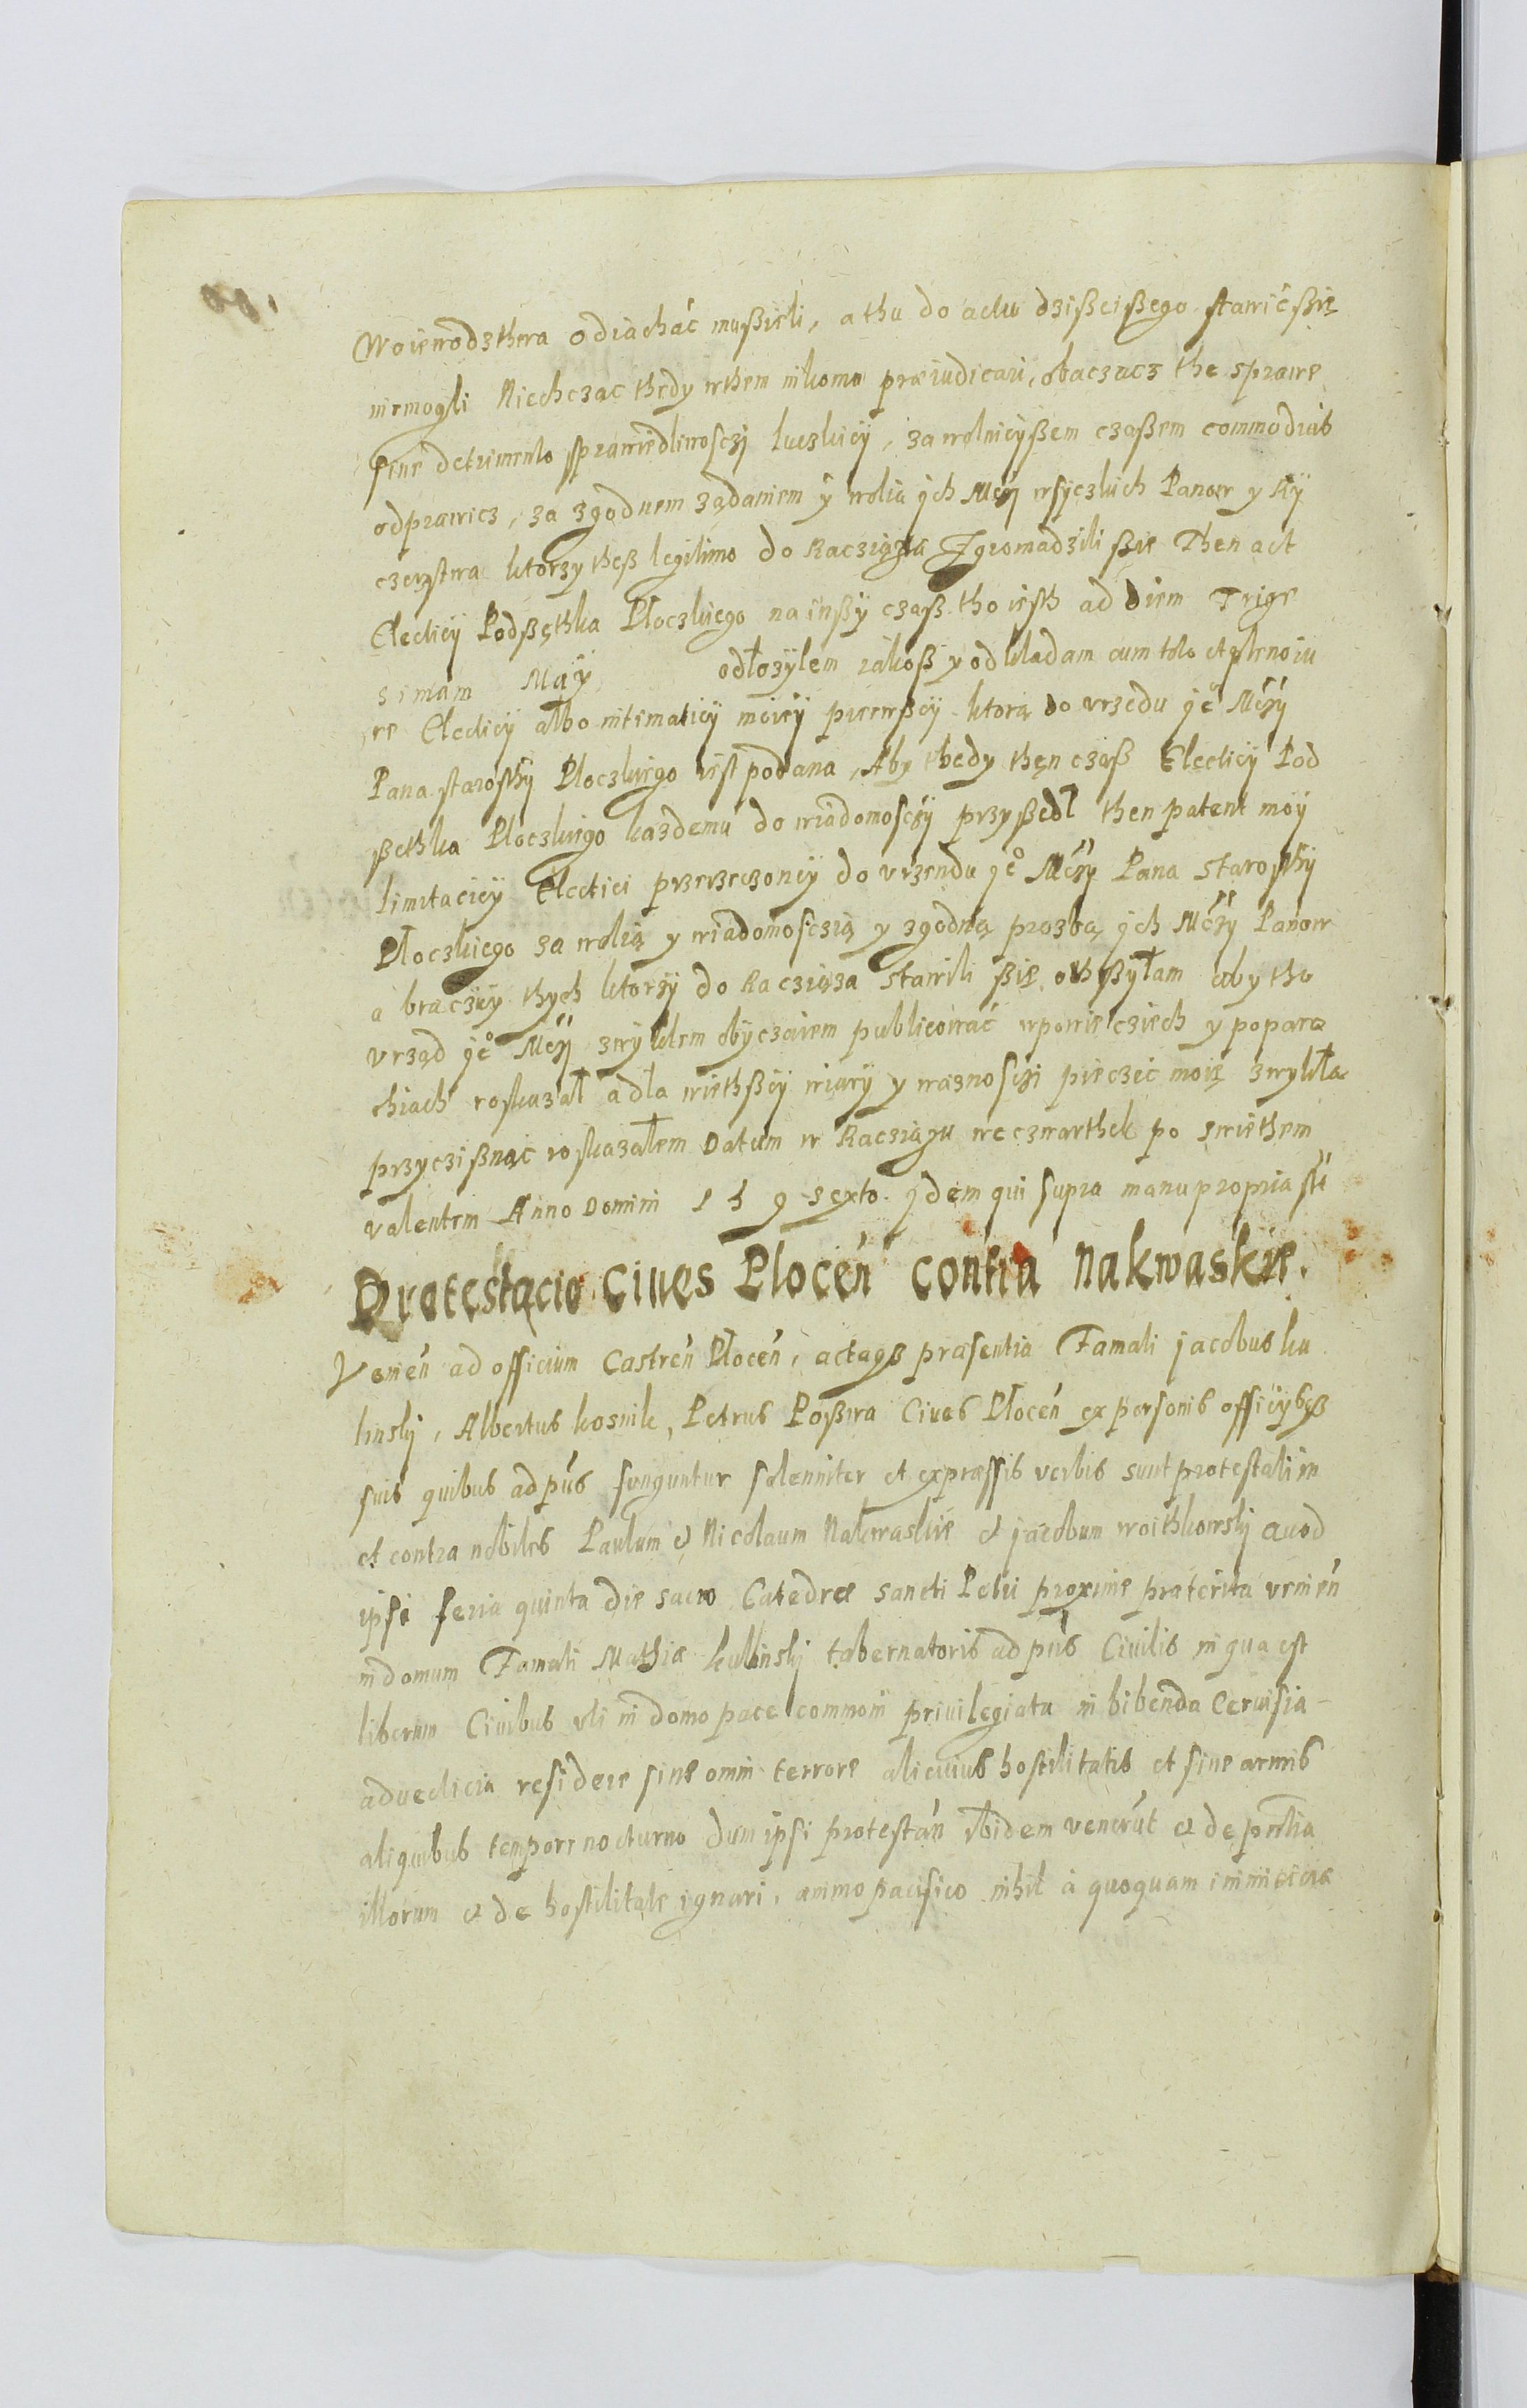 Woiewodzthwa odiachać mußieli, a thu do actu dzißeißego stawić ßię
niemogli Niechcząc thedy wthem nikomu præiudicari, obaczącz the sprawę
sine detrimento sprawiedliwosczj luczkiey, za wolnieyßem czaßem commodius
odprawicz, za zgodnem żądaniem y wolią ich Mczj wsyczkich Panow y Ry
czerstwa ktorzy theß legitime do Racziąża Zgromadzili ßie Then act
Electiey Podßethka Płoczkiego na inßy czaß tho iesth ad diem Trige
simam May odłożylem iakoß y odkładam cum toto et pleno iu
re Electiey albo intimatiey moiey pierwßey ktora do vrzedu ie° Mczy
Pana starosthy Płoczkiego iest podana, Aby thedy then czaß Electiey Pod
ßethka Płoczkiego każdemu do wiadomosczy przyßedł then patent moy
limitaciey Electiei przerzeczoney do vrzendu ie° Mczy Pana Starosthy
Płoczkiego za wolią y wiadomosczią y zgodną prozbą ich Mczy Panow
a braczey thych ktorzy do Racziąża stawili ßię othßyłam aby tho
vrząd ie° Mczj zwykłem obyczaiem publicować wpowieczieh y popara
chiach roskazał a dla wiethßey wiary y wasnosczi pieczęć moię zwykłą
przyczisnąć roskazałem Datum w Racziążu we czwarthek po swiethem
valentem Anno Domini 1 5 9 sexto. idem qui supra manu propria sst
Protestacio Ciues Plocen contra Nakwaskie.
Venien ad officium Castren Płocen, actaqз præsentia Famati jacobus ku
linskj, Albertus kosnik, Petrus Poßwa Ciues Płocen ex personis officijsqз
suis quibus ad pns funguntur solenniter et expræssis verbis sunt protestati in
et contra nobiles Paulum et Nicolaum Nakwaskie et jacobum woithkowskj quod
ipsi feria quinta die sacro Catedræ sancti Petri proxime præterita venien
in domum Famati Mathiæ kulinskj tabernatoris ad pns Ciuilis in qua est
liberum Ciuibus vti in domo pace commoni priuilegiata in bibenda Ceruisia
aduecticia residere sine omni terrore alicuius hostilitatis et sine armis
aliquibus tempore nocturno dum ipsi protestan ibidem venerut et de pntia
illorum et de hostilitate ignari, animo pacifico nihil à quoquam inimiciciæ